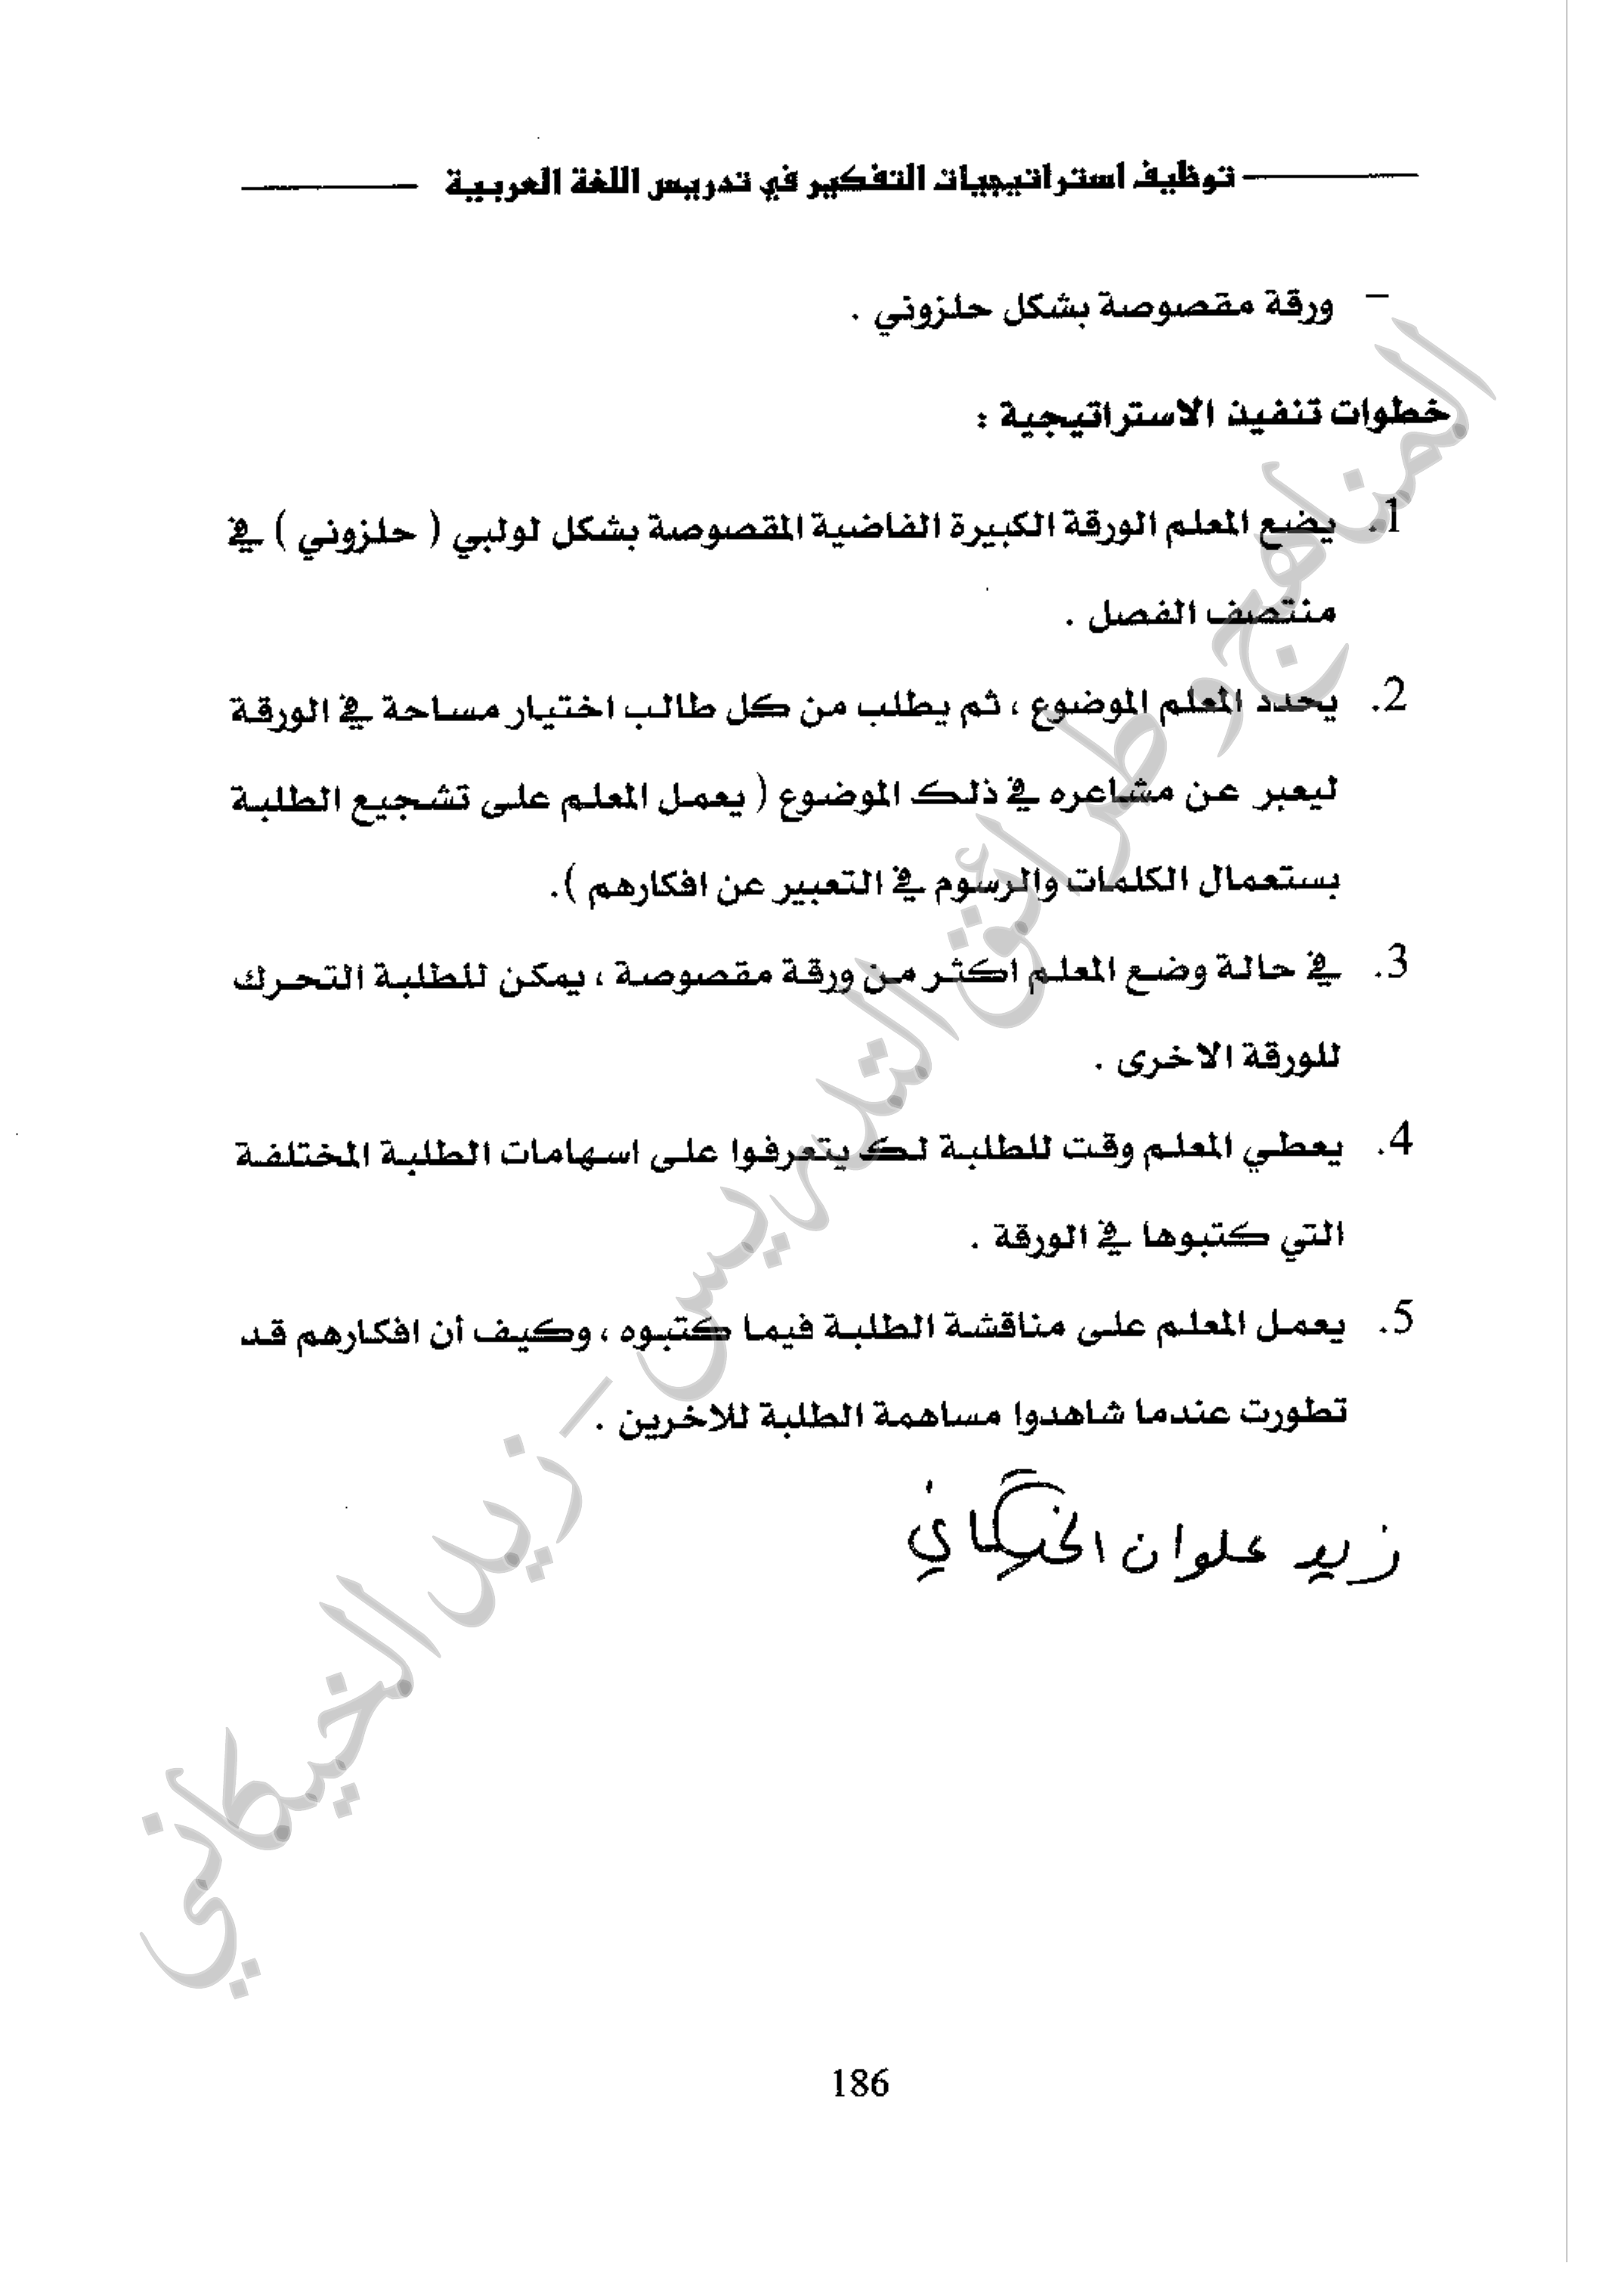 توظيف استراتيجيات التفكير في تدريس اللغة العربية
– ورقة مقصوصة بشكل حلزوني .
خطوات تنفيذ الاستراتيجية :
1. يضع المعلم الورقة الكبيرة الفاضية المقصوصة بشكل لولبي ( حلزوني ) في
منتصف الفصل .
2. يحدد المعلم الموضوع ، ثم يطلب من كل طالب اختيار مساحة في الورقة
ليعبر عن مشاعره في ذلك الموضوع ( يعمل المعلم على تشجيع الطلبة
بستعمال الكلمات والرسوم في التعبير عن افكارهم ).
3. في حالة وضع المعلم اكثر من ورقة مقصوصة ، يمكن للطلبة التحرك
للورقة الاخرى .
4. يعطي المعلم وقت للطلبة لك يتعرفوا على اسهامات الطلبة المختلفة
التي كتبوها في الورقة .
5. يعمل المعلم على مناقشة الطلبة فيما كتبوه ، وكيف أن افكارهم قد
تطورت عندما شاهدوا مساهمة الطلبة للاخرين .
زيد علوان الخيكاني
المناهج وطرائق التدريس – زيد الخيكاني
186